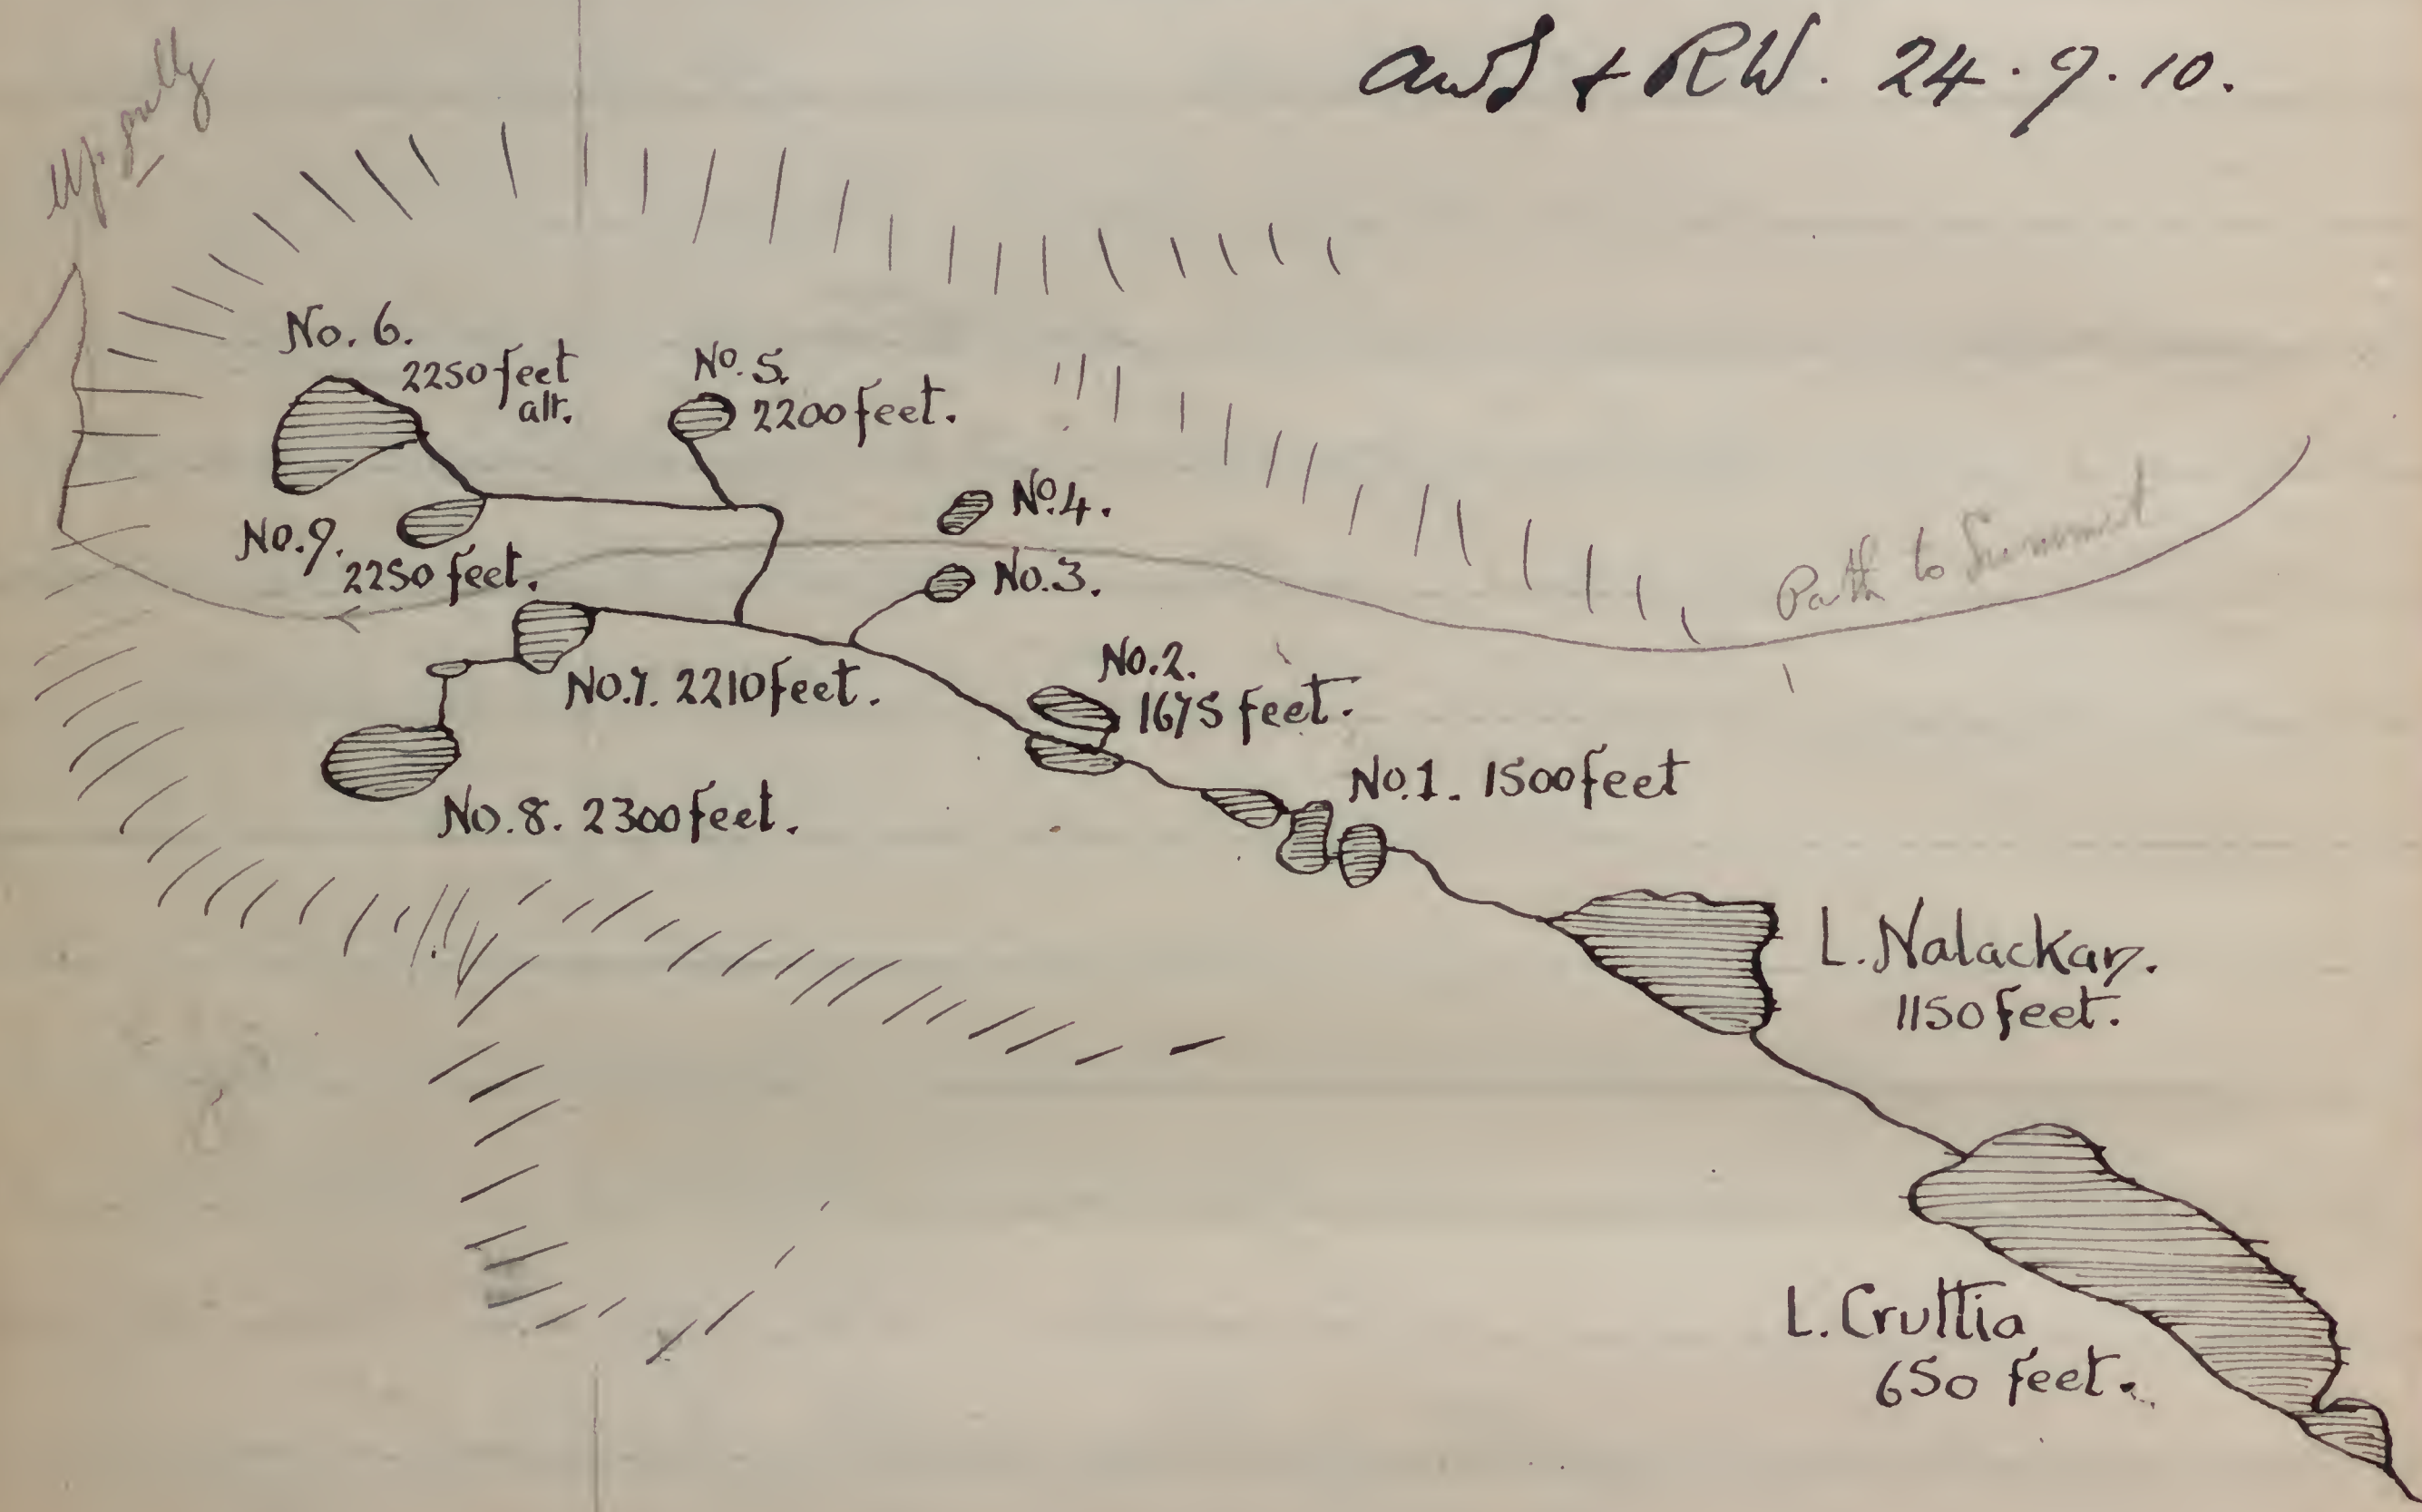 awS + RW. 24.9.10.
gully
No. 6.
2250 feet
alt.
No. 5.
2200 feet.
No. 4.
No. 9.
2250 feet.
No. 3.
Path to Summit
No. 7. 2210 feet.
No. 2.
1675 feet.
No. 8. 2300 feet.
No. 1. 1500 feet
L. Nalackan.
1150 feet.
L. Cruttia
650 feet.